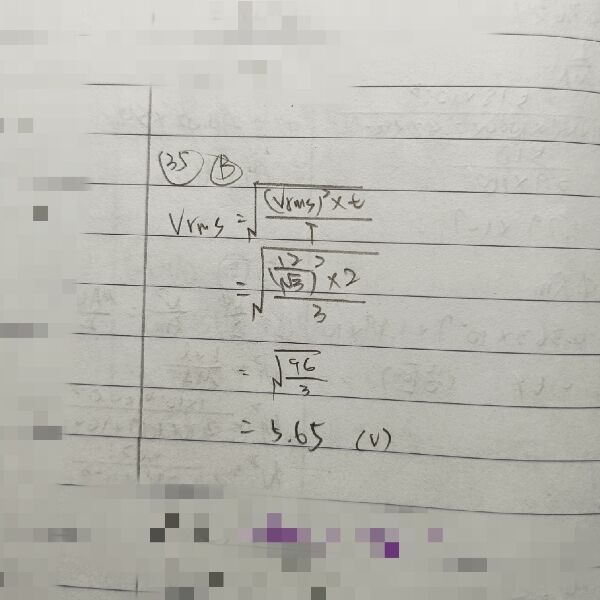 (35) (B)
Vrms = √((Vrms)² × t / T)
= √((12/√3)² × 2 / 3)
= √(96/3)
= 5.65 (V)